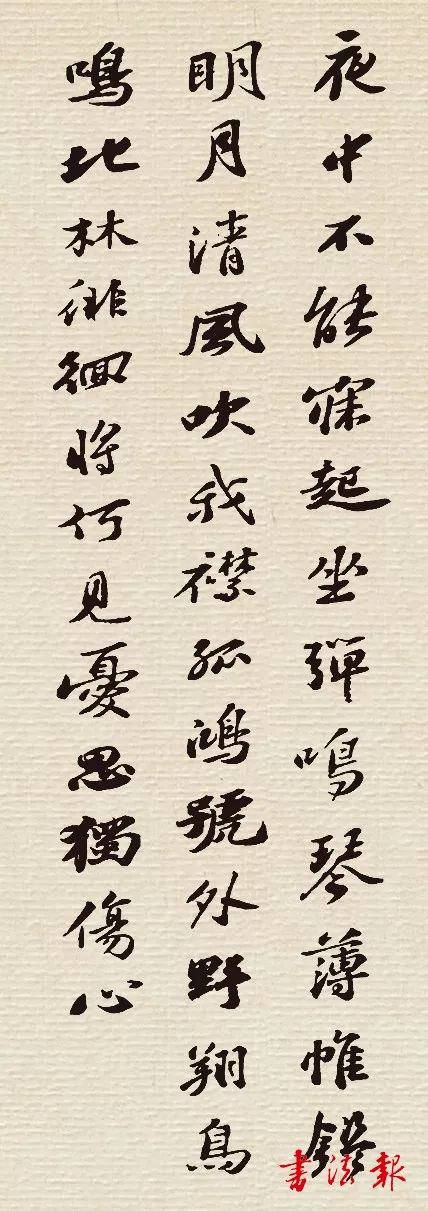 夜中不能寐起坐彈鳴琴薄帷鑑
明月清風吹我襟孤鴻號外野翔鳥
鳴北林徘徊將何見憂思獨傷心
書法報